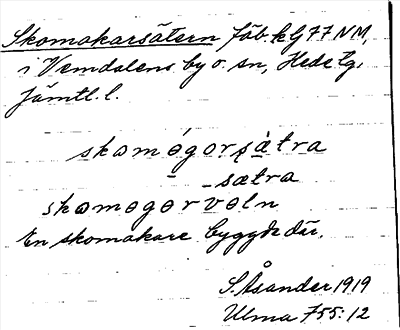 Skomakarsätern fäb. kG77NM,
i Vemdalens by o. sn, Hede tg,
Jämtl. l.
skomǿgorşàtra
– sætra
skomogorvoln
En skomakare byggde där.
S Åsander 1919
Ulma 755:12